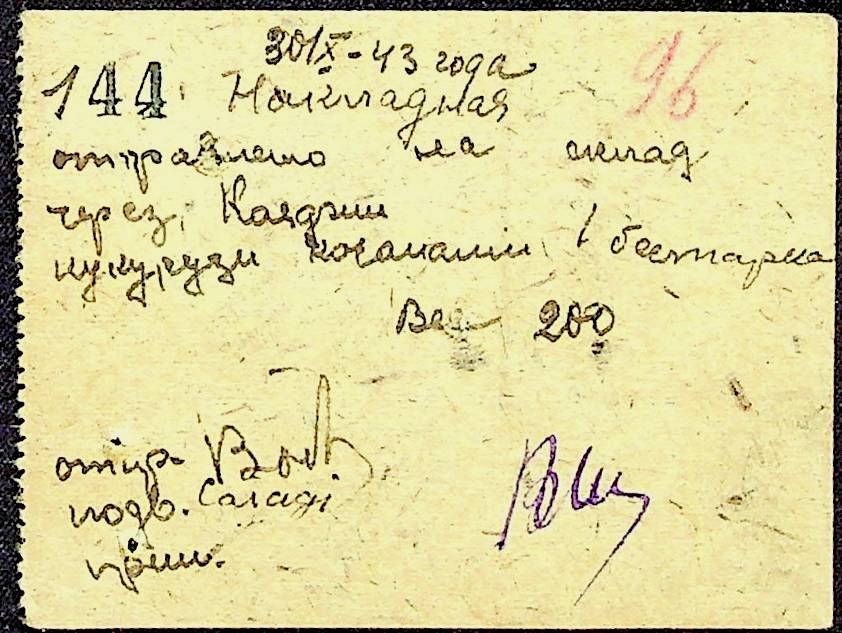 30/X-43 года
144 Накладная 96
отправлено на склад
через
кукурузи кочанами 1 бестарка
Вес 200
отпр.
подв.
прин.